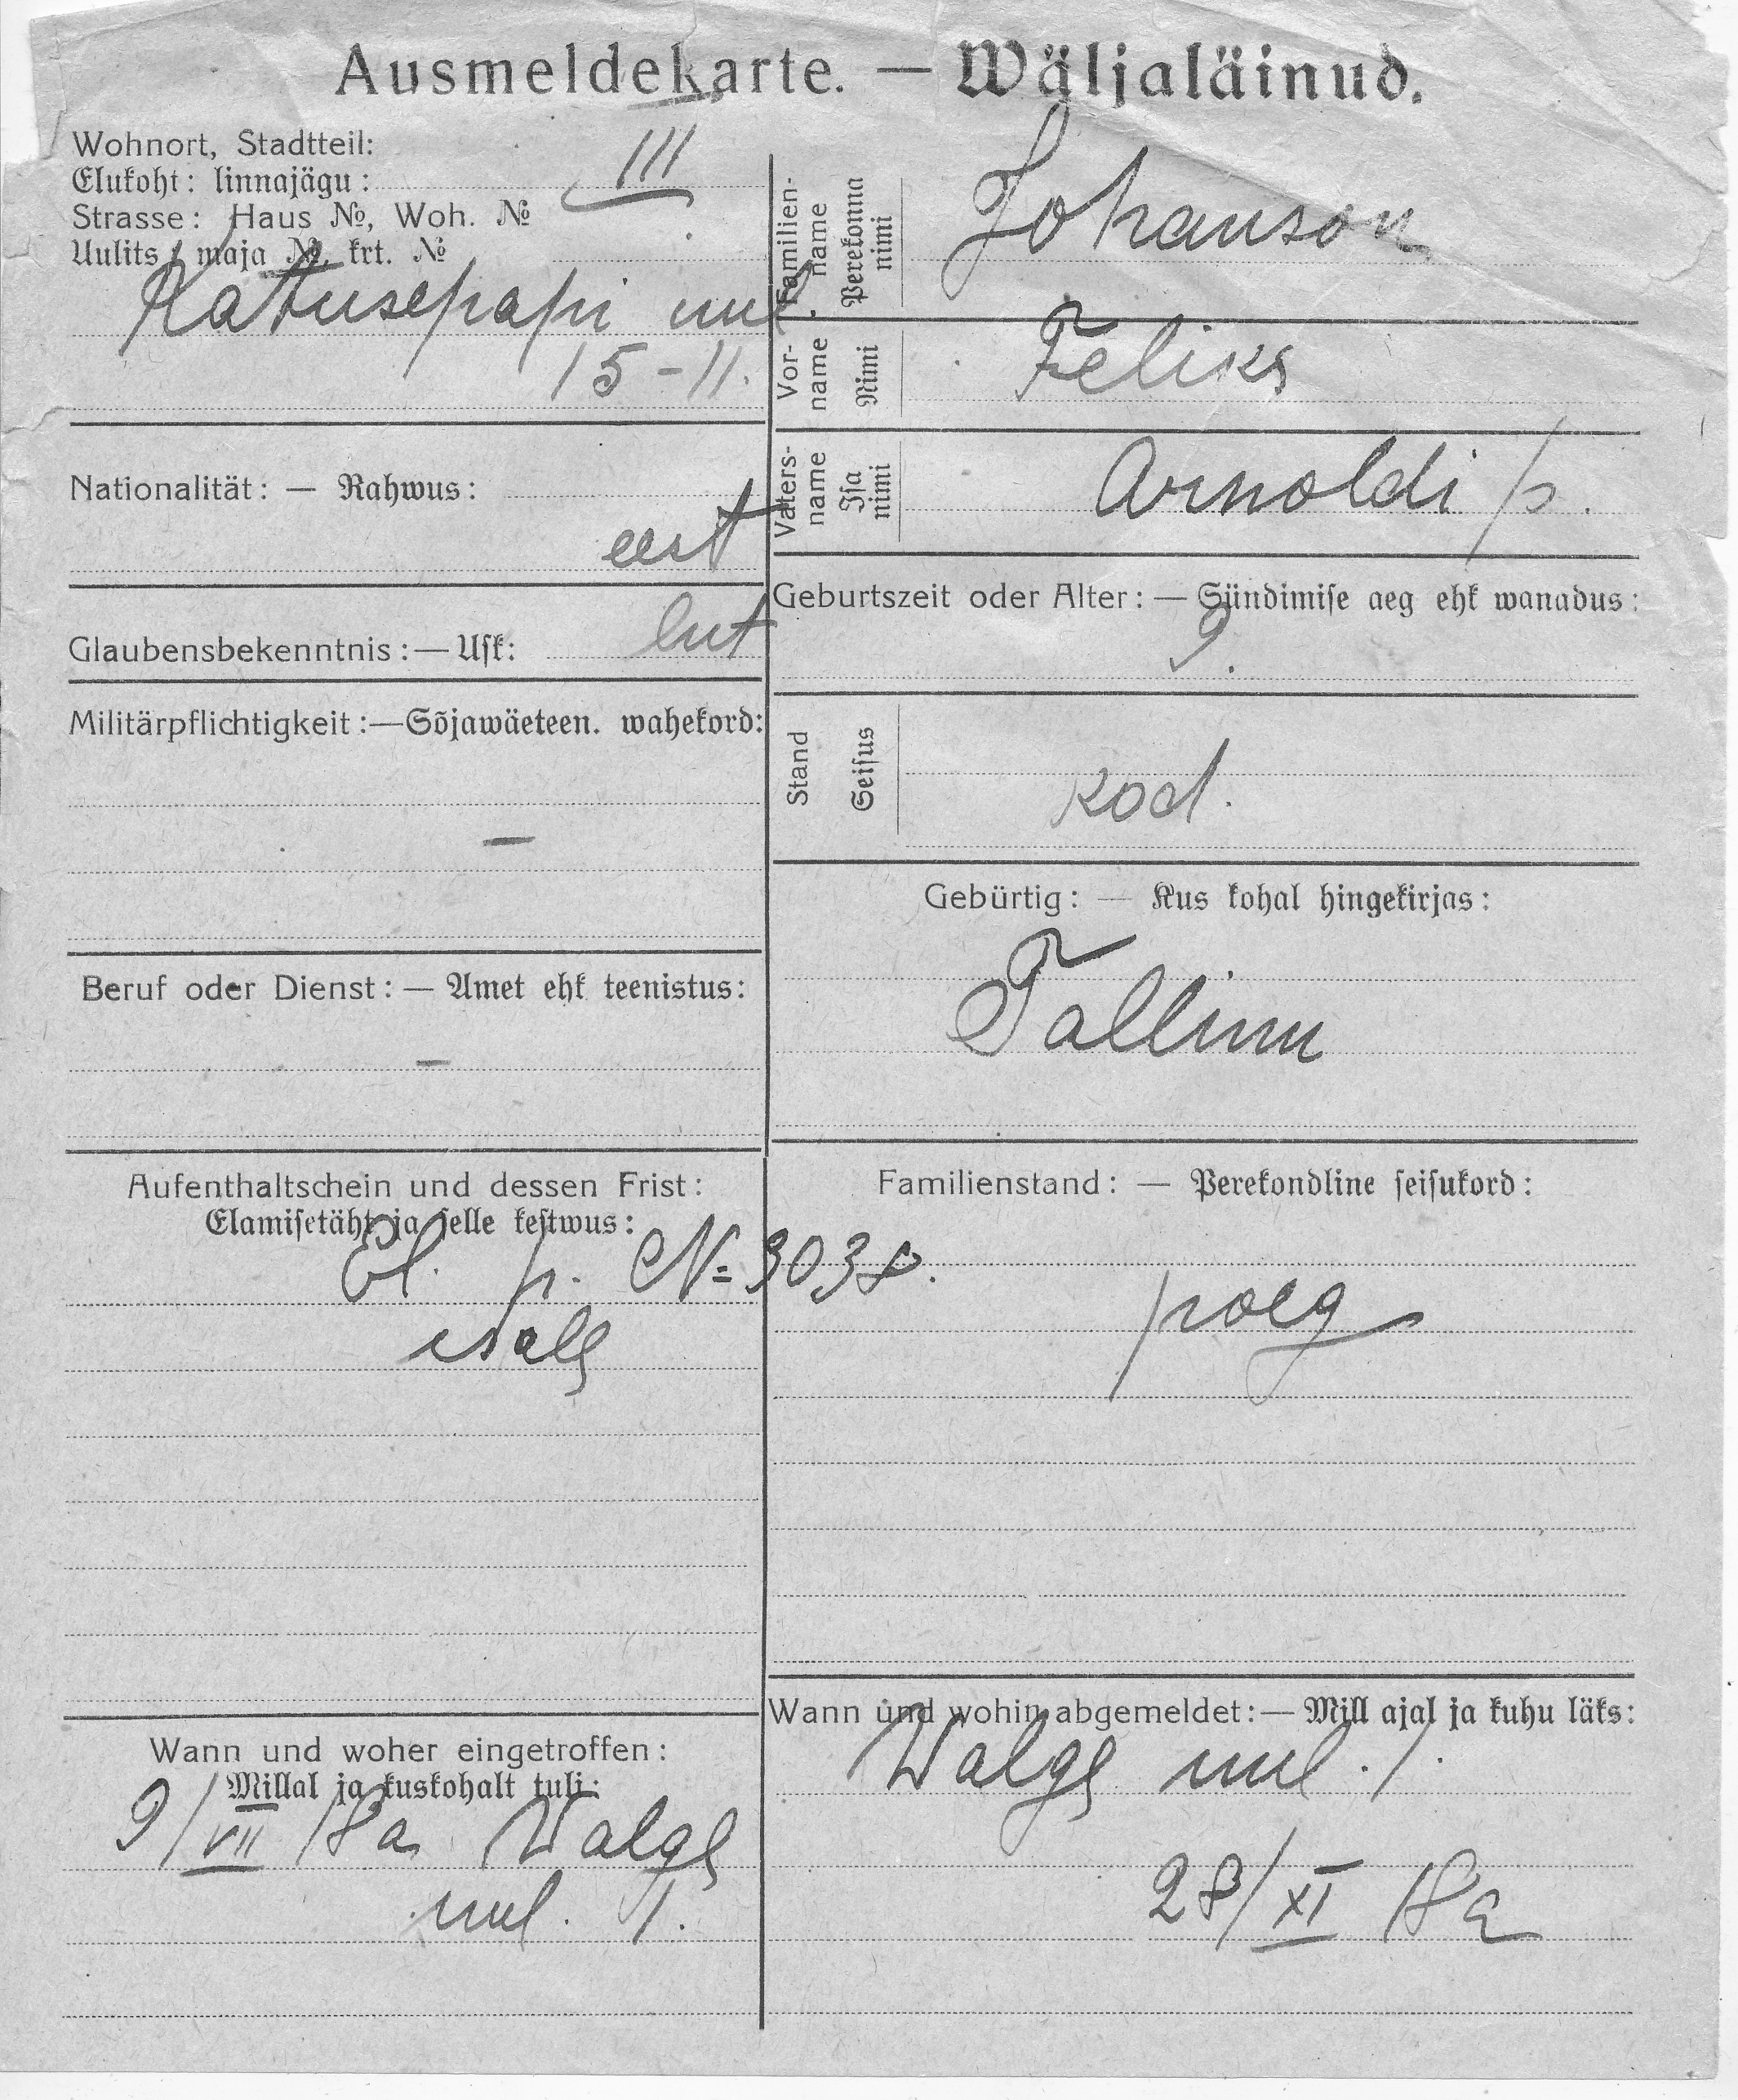 Ausmeldekarte. — Wäljaläinud.
Wohnort, Stadtteil:
Elukoht: linnajägu: III
Strasse: Haus №, Woh. №
Uulits, maja №, krt. №
Katusepapi uul.
15-11.
Nationalität: — Rahwus:
eest
Glaubensbekenntnis: — Usk: lut
Militärpflichtigkeit: — Sõjawäeteen. wahekord:
—
Beruf oder Dienst: — Amet ehk teenistus:
—
Aufenthaltschein und dessen Frist:
Elamisetäht ja selle kestwus:
El. p. N= 3038.
isal
Wann und woher eingetroffen:
Millal ja kuskohalt tuli:
9/VII 18 a Walge
uul. 1.
Familien-name Perekonna nimi Johanson
Vor-name Nimi Feliks
Vaters-name Isa nimi Arnoldi p.
Geburtszeit oder Alter: — Sündimise aeg ehk wanadus:
9.
Stand Seisus kod.
Gebürtig: — Kus kohal hingekirjas:
Tallinn
Familienstand: — Perekondline seisukord:
poeg
Wann und wohin abgemeldet: — Mill ajal ja kuhu läks:
Walge uul. 1.
28/XI 18 a